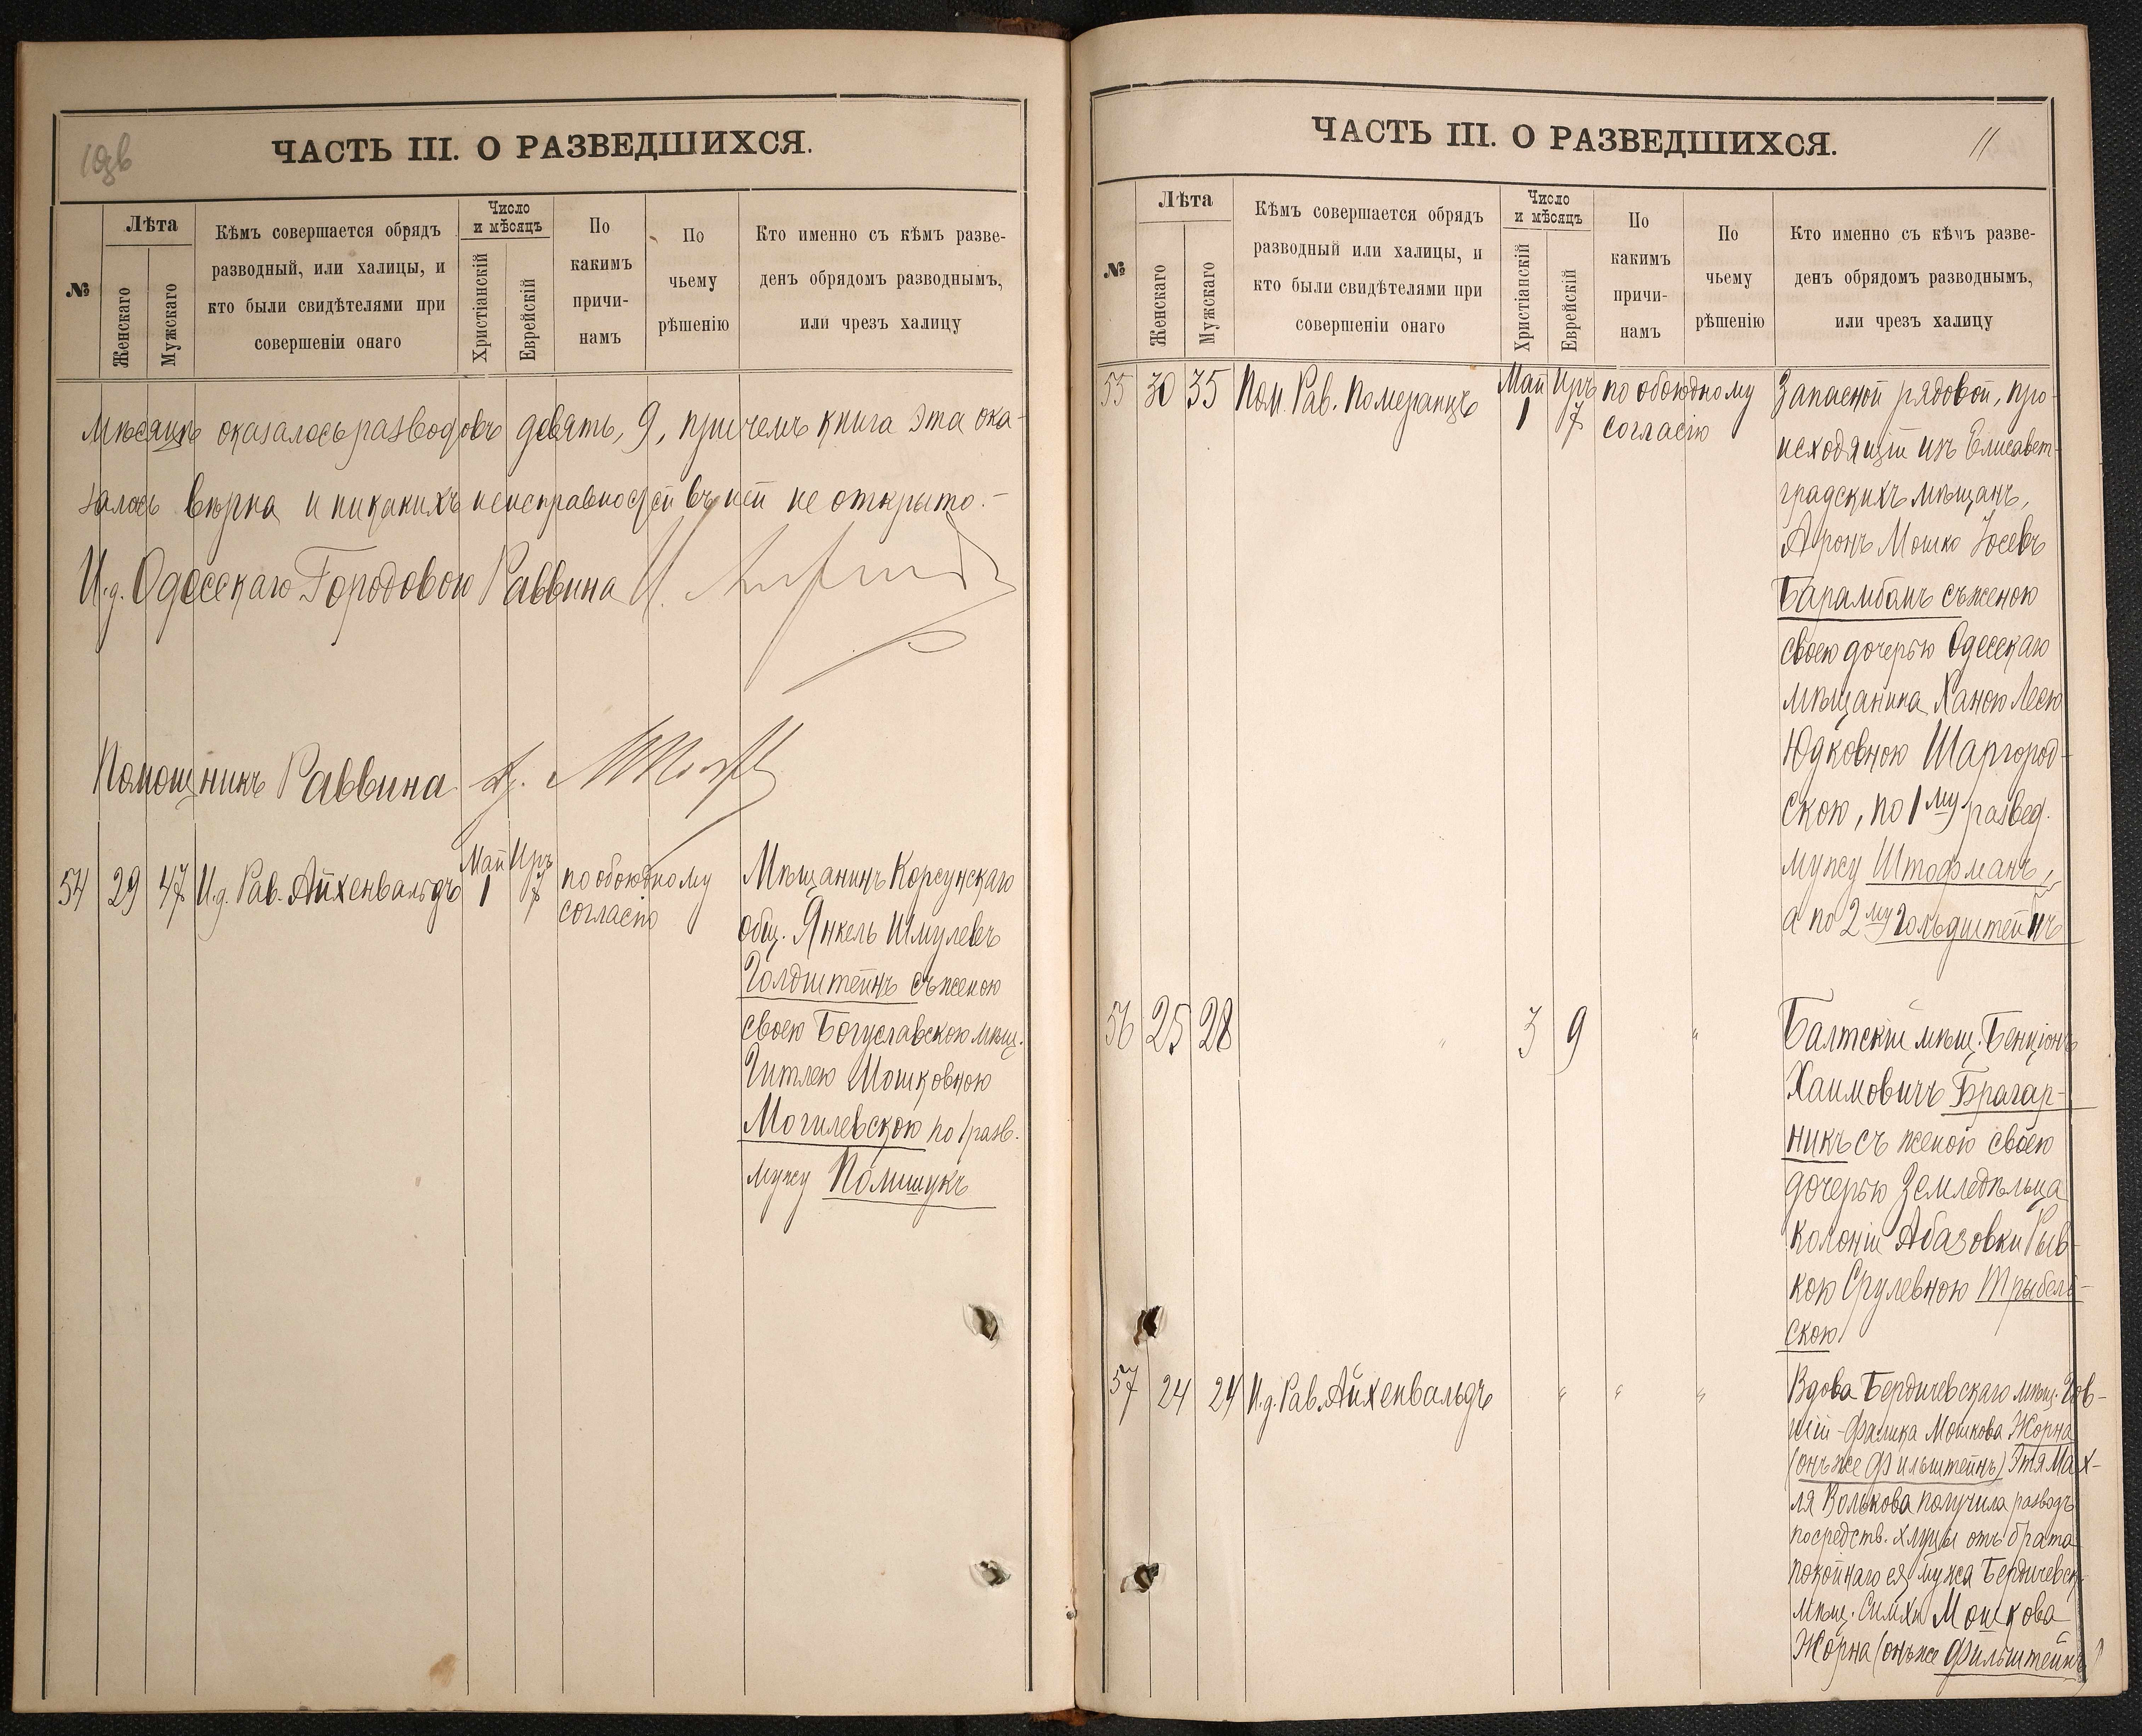 10об
ЧАСТЬ III. О РАЗВЕДШИХСЯ.
№
Лѣта
Женскаго
Мужскаго
Кѣмъ совершается обрядъ
разводный, или халицы, и
кто были свидѣтелями при
совершеніи онаго
Число
и мѣсяцъ
Христіанскій
Еврейскій
По
какимъ
причи-
намъ
По
чьему
рѣшенію
Кто именно съ кѣмъ разве-
денъ обрядомъ разводнымъ,
или чрезъ халицу
Мѣсяцѣ оказалось разводовъ девять, 9, причемъ книга эта ока-
залась вѣрна и никакихъ неисправностей въ ней не открыто.-
И.д. Одесскаго Городового Раввина
Помощникъ Раввина
54 29 47 И.д. Рав. Айхенвальдъ Май 1 Иръ 7 по обоюдному
согласію
Мѣщанинъ Корсунскаго
общ. Янкель Шмулевъ
Голдштейнъ съ женою
своею Богуславскою мѣщ.
Гитлею Мошковною
Могилевскою по 1 разв.
мужу Полищукъ
ЧАСТЬ III. О РАЗВЕДШИХСЯ.
11
№
Лѣта
Женскаго
Мужскаго
Кѣмъ совершается обрядъ
разводный или халицы, и
кто были свидѣтелями при
совершеніи онаго
Число
и мѣсяцъ
Христіанскій
Еврейскій
По
какимъ
причи-
намъ
По
чьему
рѣшенію
Кто именно съ кѣмъ разве-
денъ обрядомъ разводнымъ,
или чрезъ халицу
55 30 35 Пом. Рав. Померанцъ Май 1 Иръ 7 по обоюдному
согласію
Запасной рядовой, про-
исходящій изъ Елисавет-
градскихъ мѣщанъ,
Аронъ Мошко Іосевъ
Барамбамъ съ женою
своею дочерью Одесскаго
мѣщанина Ханою Леею
Юдковною Шаргород-
скою, по 1му развед.
мужу Штофманъ,
а по 2му Гольдштейнъ
56 25 28 " 3 9 "
Балтскій мѣщ. Бенціонъ
Хаимовичъ Брагар-
никъ съ женою своею
дочерью Земледѣльца
колоніи Абазовки Рыв-
кою Срулевною Трыбель-
скою
57 24 24 И.д. Рав. Айхенвальдъ " " "
Вдова Бердичевскаго мѣщ.
Фалика Мошкова Жорна
(онъ же Фильштейнъ) Этя Мах-
ля Волькова получила разводъ
посредств. хлуцы отъ брата
покойнаго ея мужа Бердичевск.
мѣщ. Симхи Мошкова
Жорна (онъ же Фильштейнъ)